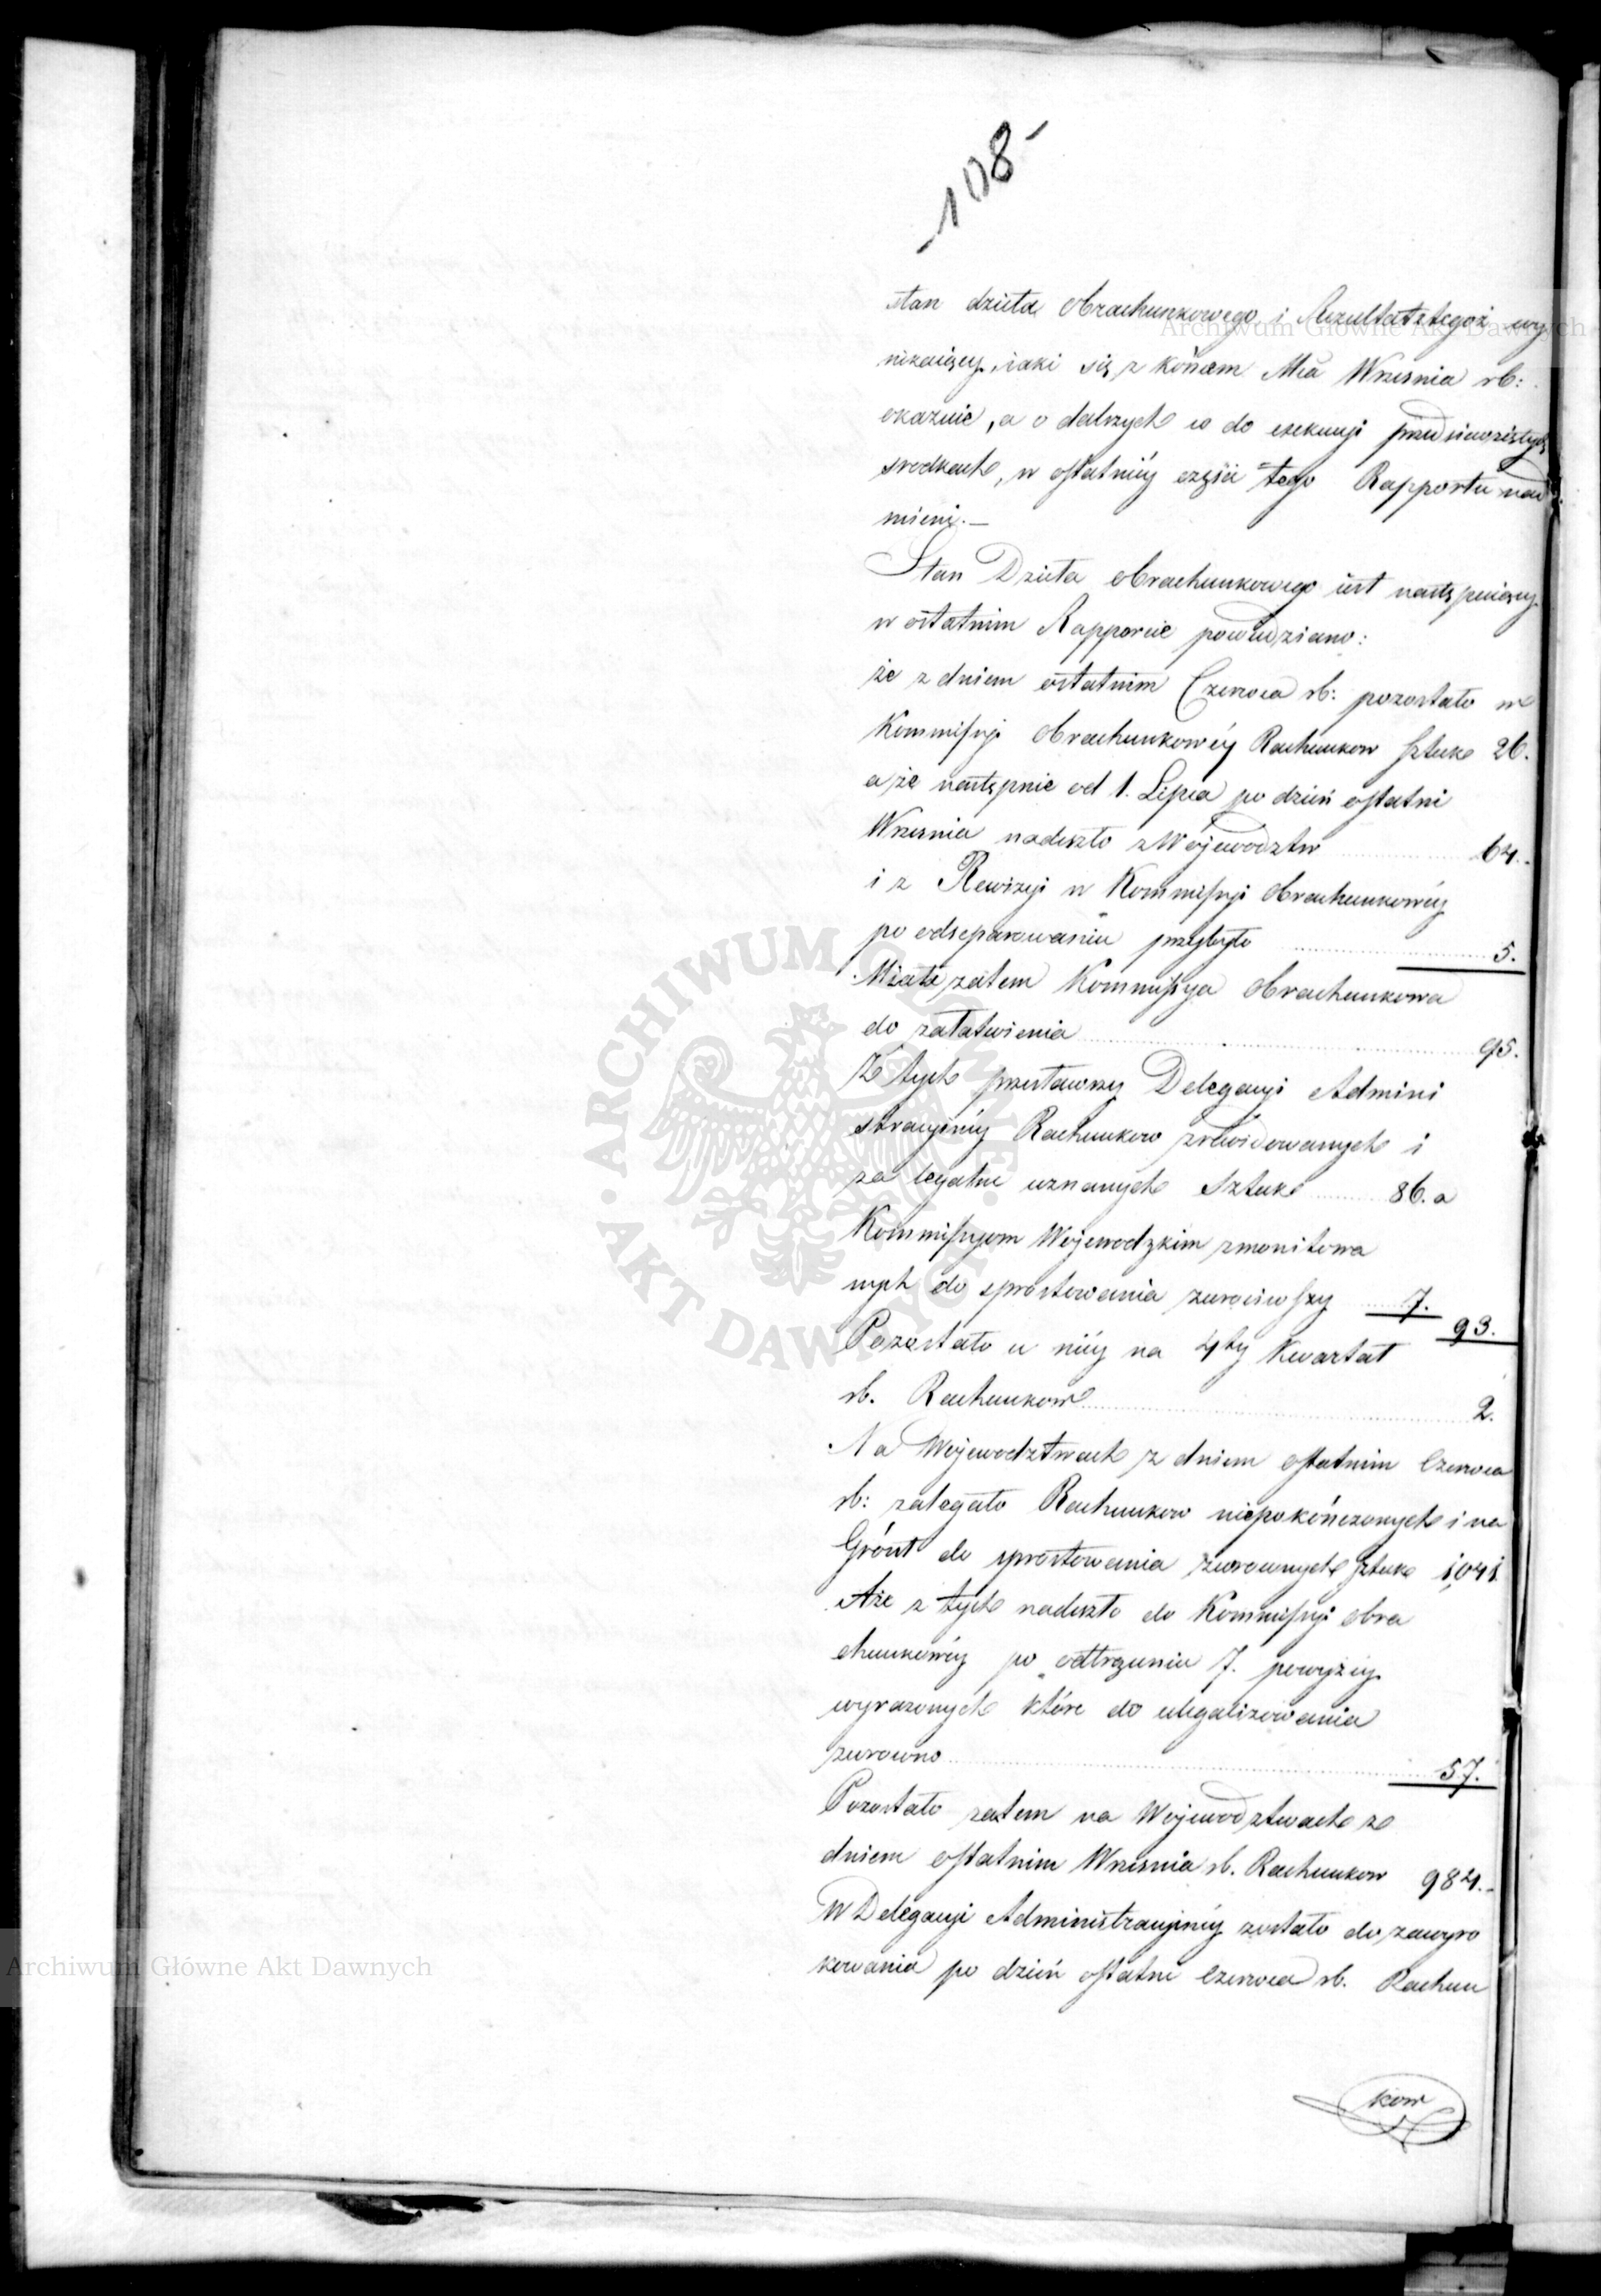 -108-
stan dzieła Obrachunkowego i Rezultat z tegoż wy
nikaiący, iaki się z końcem Mca Września rb:
okazuie, a o dalszych co do exekucyi przedsięwziętych
srodkach, w ostatniéy części tego Rapportu nad
mieni.—
Stan Dzieła Obrachunkowego iest następuiący.
w ostatnim Rapporcie powiedziano:
że z dniem ostatnim Czerwca rb: pozostało w
Kommissyi Obrachunkowéy Rachunkow sztuk 26.
a że następnie od 1. Lipca po dzień ostatni
Września nadeszło z Województw 64.
i z Rewizyi w Kommissyi Obrachunkowéy
po odseparowaniu przybyło 5.
Miała zatem Kommissya Obrachunkowa
do załatwienia 95.
Z tych przestawszy Delegacyi Admini
stracyinéy Rachunkow zrewidowanych i
za legalne uznanych sztuk 86. a
Kommissyom Wojewodzkim zmonitowa
nych do sprostowania zwrociwszy 7.
93.
Pozostało u niéy na 4ty Kwartał
rb. Rachunkow 2.
Na Wojewodztwach z dniem ostatnim Czerwca
rb: zalegało Rachunkow niepokończonych i na
Grónt do sprostowania zwroconych sztuk 1041
A że z tych nadeszło do Kommissyi Obra
chunkowéy po odtrąceniu 7. powyżéy
wyrażonych które do ulegalizowania
zwrocono 57.
Pozostało zatem na Wojewodztwach z
dniem ostatnim Września rb. Rachunkow 984.
W Delegacyi Administracyinéy zostało do zawyro
kowania po dzień ostatni Czerwca rb. Rachun
kow
Archiwum Główne Akt Dawnych
Archiwum Główne Akt Dawnych
ARCHIWUM GŁÓWNE • AKT DAWNYCH •